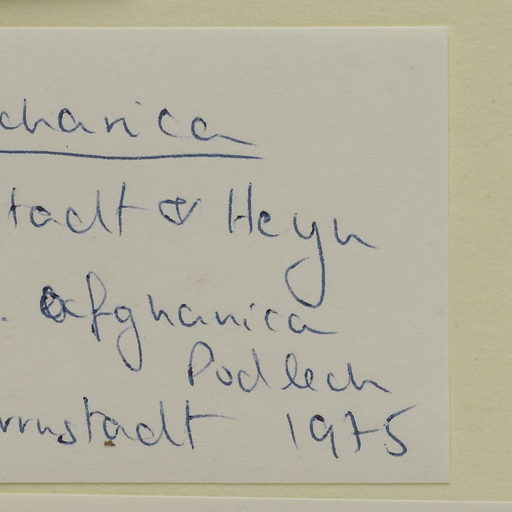 charica
tadt & Heyn
. afghanica
Podlech
rnstadt 1975